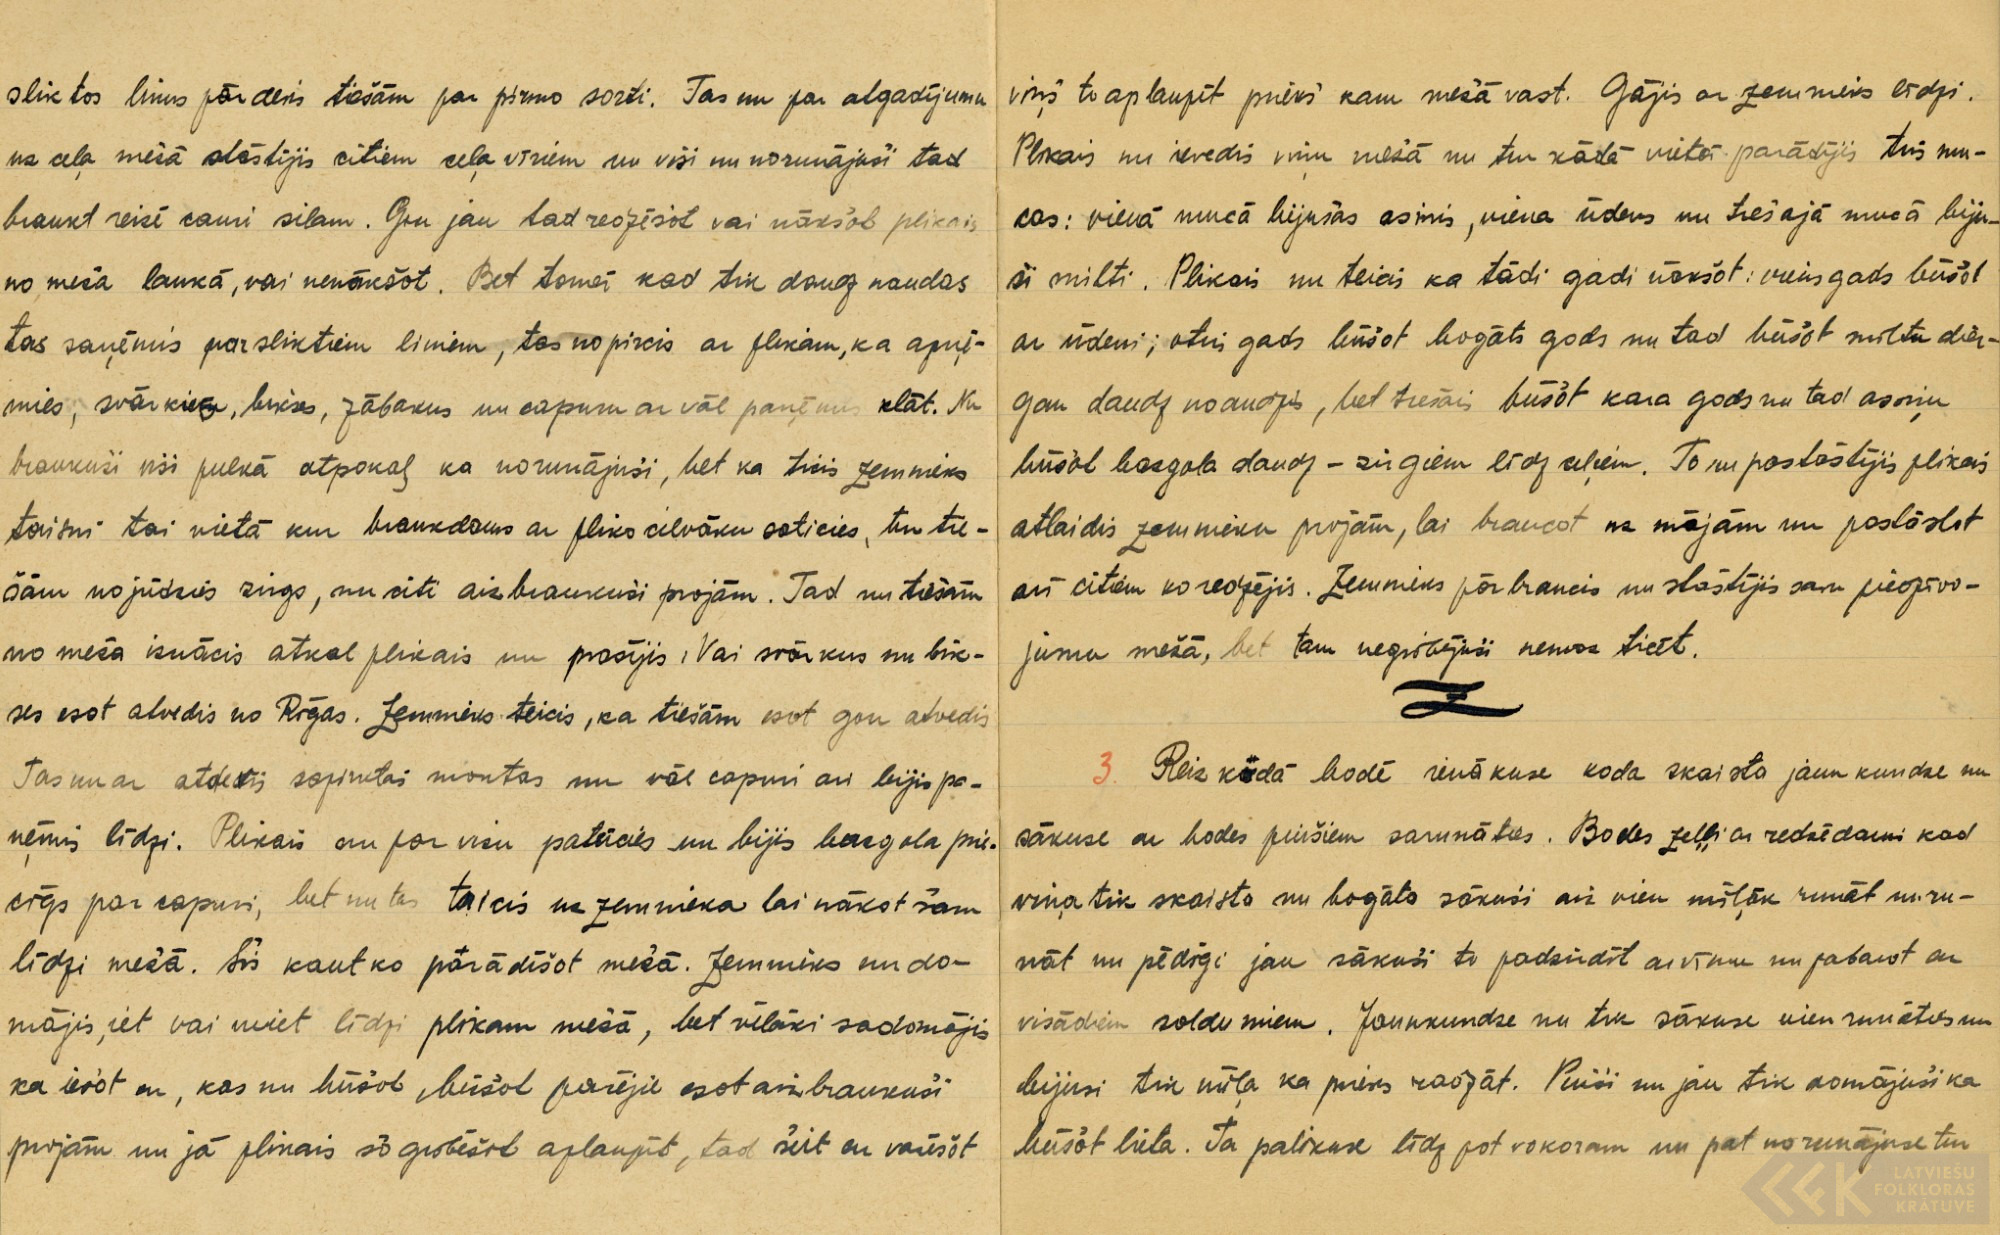 sliktos linus pārdevis tiešām par pirmo sorti. Tas nu par atgadījumu
uz ceļa mežā stāstījis citiem ceļa vīriem un viši nu norunājuši tad
braukt reizē cauri silam. Gon jau tad redzēšot vai nākšot plikais
no meža laukā, vai nenākšot. Bet tomēr kad tik daudz naudas
tas saņēmis par sliktiem liniem, tas nopircis ar plikam, ka apņē-
mies, svārkus, bikses, zābakus un capuru ar vāl paņēmis klāt. Nu
braukuši viši pulkā atpakaļ ka norunājuši, bet ka ticis zemnieks
taisni tai vietā kur braukdams ar pliko cilvāku saticies, tur tie-
šām nojūdzies zirgs, nu citi aizbraukuši projām. Tad nu tiešām
no meža iznācis atkal plikais un prasījis, Vai svārkus un bik-
ses esot atvedis no Rīgas. Zemnieks teicis, ka tiešām esot gon atvedis
Tas nu ar atdevis sapirktās montas un vāl capuri ari bijis pa-
ņēmis līdzi. Plikais nu par visu patācies un bijis bezgola prie-
cīgs par capuri, bet nu tas teicis uz zemnieka lai nākot šam
līdzi mežā. Šis kaut ko pārādīšot mežā. Zemnieks nu do-
mājis, iet vai neiet līdzi plikam mežā, bet vēlāki sadomājis
ka iešot ar, kas nu būšot, būšot parējie esot aizbraukuši
projām un jā plikais šo gribēšot aplaupīt, tad šeit ar varēšot
viņš to aplaupīt prieks kam mežā vast. Gājis ar zemnieks līdzi.
Plikais nu ievedis viņu mežā un tur kādā vietā parādījis trīs mu-
cas: vienā mucā bijušas asinis, viena ūdens un trešajā mucā biju-
ši milti. Plikais nu teicis ka tādi gadi nākšot: viens gads būšot
ar ūdeni; otris gads būšot bogāts gods nu tad būšot miltu diez-
gan daudz noaudzis, bet trešais būšot kara gods nu tad asoņu
būšot bezgola daudz – zirgiem līdz ceļiem. To nu pastāstījis plikais
atlaidis zemnieku projām, lai braucot uz mājām un pastāstot
ari citiem ko redzējis. Zemnieks pārbraucis un stāstījis savu piedzīvo-
jumu mežā, bet tam negribējuši nemaz ticēt.
3. Reiz kādā bodē ienākuse koda skaista jaunkundze un
sākuse ar bodes puišiem sarunāties. Bodes zeļļi ar redzēdami kad
viņa tik skaista un bogāta sākuši aiz vien mīļāk runāt un ru-
nāt un pēdīgi jau sākuši to padzirdīt ar vīnu un pabarot ar
visādiem soldumiem. Jaunkundze nu tik sākuse vien runāties un
bijusi tik mīļa ka prieks raodzāt. Puiši nu jau tik domājuši ka
būšot lieta. Ta palikuse līdz pat vokoram un pat norunājuse tur
LATVIEŠU
FOLKLORAS
KRĀTUVE